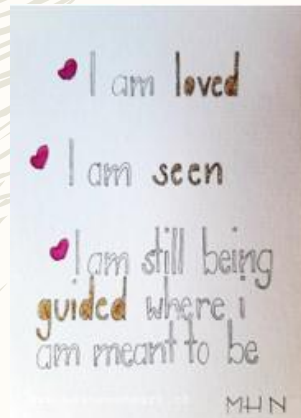 I am loved
I am seen
I am still being
guided where i
am meant to be
MHN